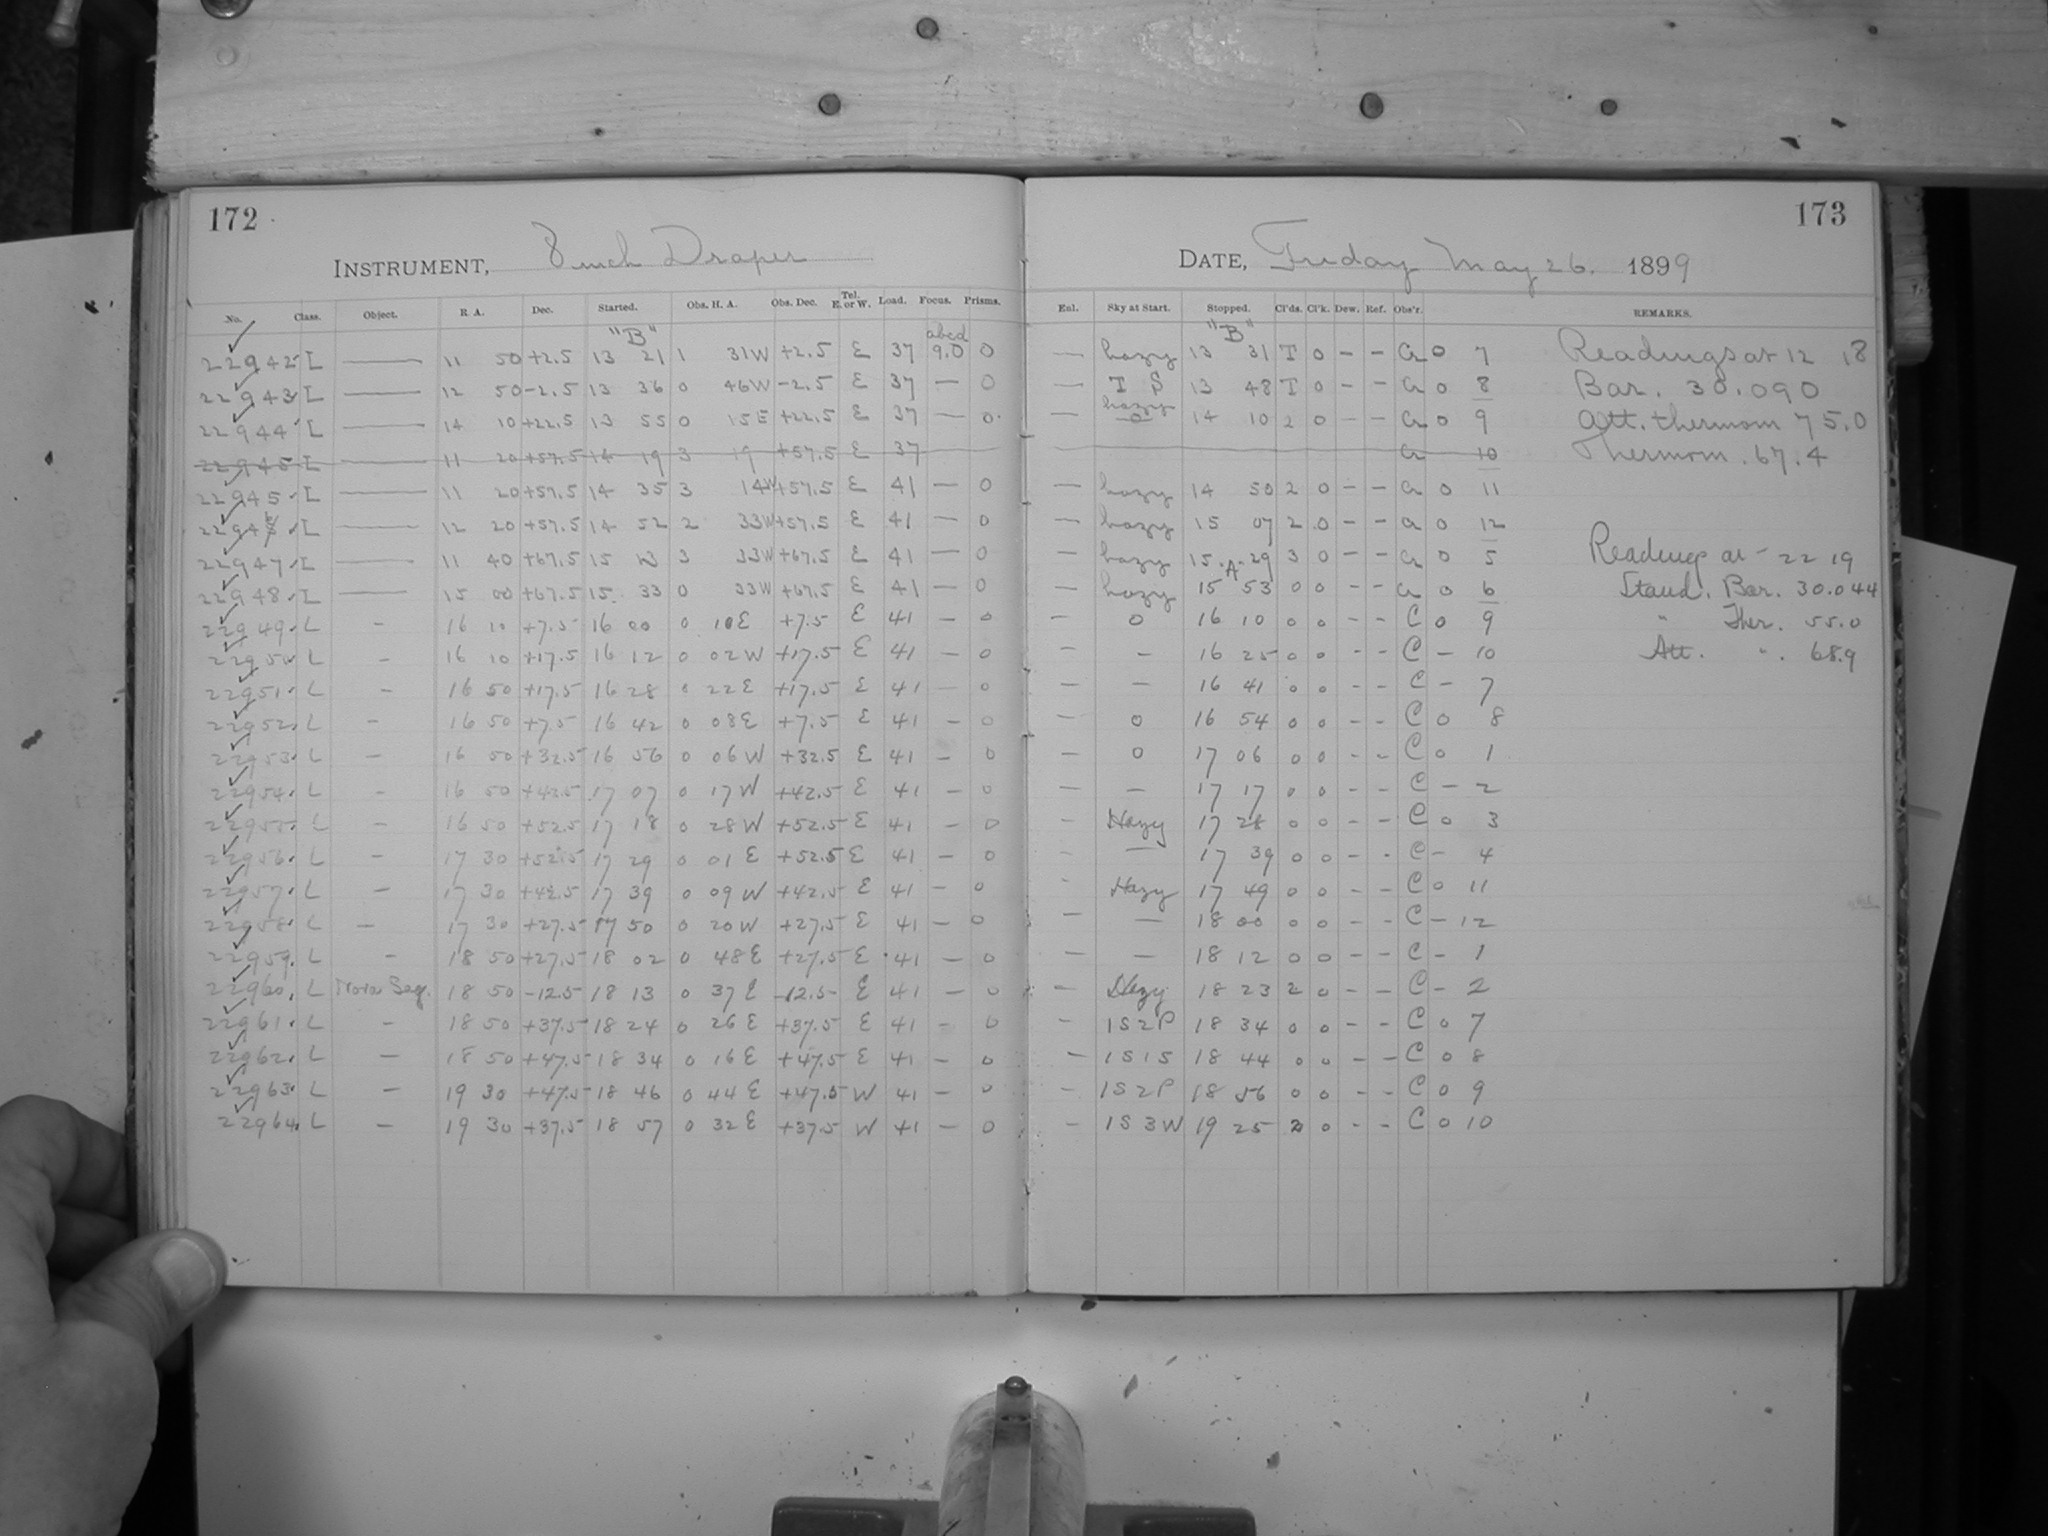 172
INSTRUMENT, 8 inch Draper
No. Class. Object. R. A. Dec. Started. Obs. H. A. Obs. Dec. Tel. E. or W. Load. Focus. Prisms.
"B" abcd
22942 L — 11 50 +2.5 13 21 1 31W +2.5 E 37 9.0 0
22943 L — 12 50 -2.5 13 36 0 46W -2.5 E 37 — 0
22944 L — 14 10 +22.5 13 55 0 15E +22.5 E 37 — 0
22945 L — 11 20 +57.5 14 19 3 19 +57.5 E 37
22945 L — 11 20 +57.5 14 35 3 14W +57.5 E 41 — 0
22946 L — 12 20 +57.5 14 52 2 33W +57.5 E 41 — 0
22947 L — 11 40 +67.5 15 13 3 33W +67.5 E 41 — 0
22948 L — 15 00 +67.5 15 33 0 33W +67.5 E 41 — 0
22949 L - 16 10 +7.5 16 00 0 10E +7.5 E 41 - 0
22950 L - 16 10 +17.5 16 12 0 02W +17.5 E 41 - 0
22951 L - 16 50 +17.5 16 28 0 22E +17.5 E 41 - 0
22952 L - 16 50 +7.5 16 42 0 08E +7.5 E 41 - 0
22953 L - 16 50 +32.5 16 56 0 06W +32.5 E 41 - 0
22954 L - 16 50 +42.5 17 07 0 17W +42.5 E 41 - 0
22955 L - 16 50 +52.5 17 18 0 28W +52.5 E 41 - 0
22956 L - 17 30 +52.5 17 29 0 01E +52.5 E 41 - 0
22957 L - 17 30 +42.5 17 39 0 09W +42.5 E 41 - 0
22958 L - 17 30 +27.5 17 50 0 20W +27.5 E 41 - 0
22959 L - 18 50 +27.5 18 02 0 48E +27.5 E 41 - 0
22960 L Nova Sag. 18 50 -12.5 18 13 0 37E -12.5 E 41 - 0
22961 L - 18 50 +37.5 18 24 0 26E +37.5 E 41 - 0
22962 L - 18 50 +47.5 18 34 0 16E +47.5 E 41 - 0
22963 L - 19 30 +47.5 18 46 0 44E +47.5 W 41 - 0
22964 L - 19 30 +37.5 18 57 0 32E +37.5 W 41 - 0
173
DATE, Friday May 26. 1899
Enl. Sky at Start. Stopped. Cl'ds. Cl'k. Dew. Ref. Obs'r. REMARKS.
"B"
— hazy 13 31 T 0 - - 0 7 Readings at 12 18
— T S 13 48 T 0 - - 0 8 Bar. 30.090
hazy
— 0 14 10 2 0 - - 0 9 Att. thermom 75.0
10 Thermom. 67.4
— hazy 14 50 2 0 - - 0 11
— hazy 15 07 2 0 - - 0 12
— hazy 15 29 3 0 - - 0 5 Readings at - 22 19
A
— hazy 15 53 0 0 - - 0 6 Stand. Bar. 30.044
- 0 16 10 0 0 - - C 0 9 " Ther. 55.0
- - 16 25 0 0 - - C - 10 Att. " 68.9
- - 16 41 0 0 - - C - 7
- 0 16 54 0 0 - - C 0 8
- 0 17 06 0 0 - - C 0 1
- - 17 17 0 0 - - C - 2
- Hazy 17 28 0 0 - - C 0 3
- - 17 39 0 0 - - C - 4
- Hazy 17 49 0 0 - - C 0 11
- - 18 00 0 0 - - C - 12
- - 18 12 0 0 - - C - 1
- Hazy 18 23 2 0 - - C - 2
- 1S2P 18 34 0 0 - - C 0 7
- 1S1S 18 44 0 0 - - C 0 8
- 1S2P 18 56 0 0 - - C 0 9
- 1S3W 19 25 2 0 - - C 0 10